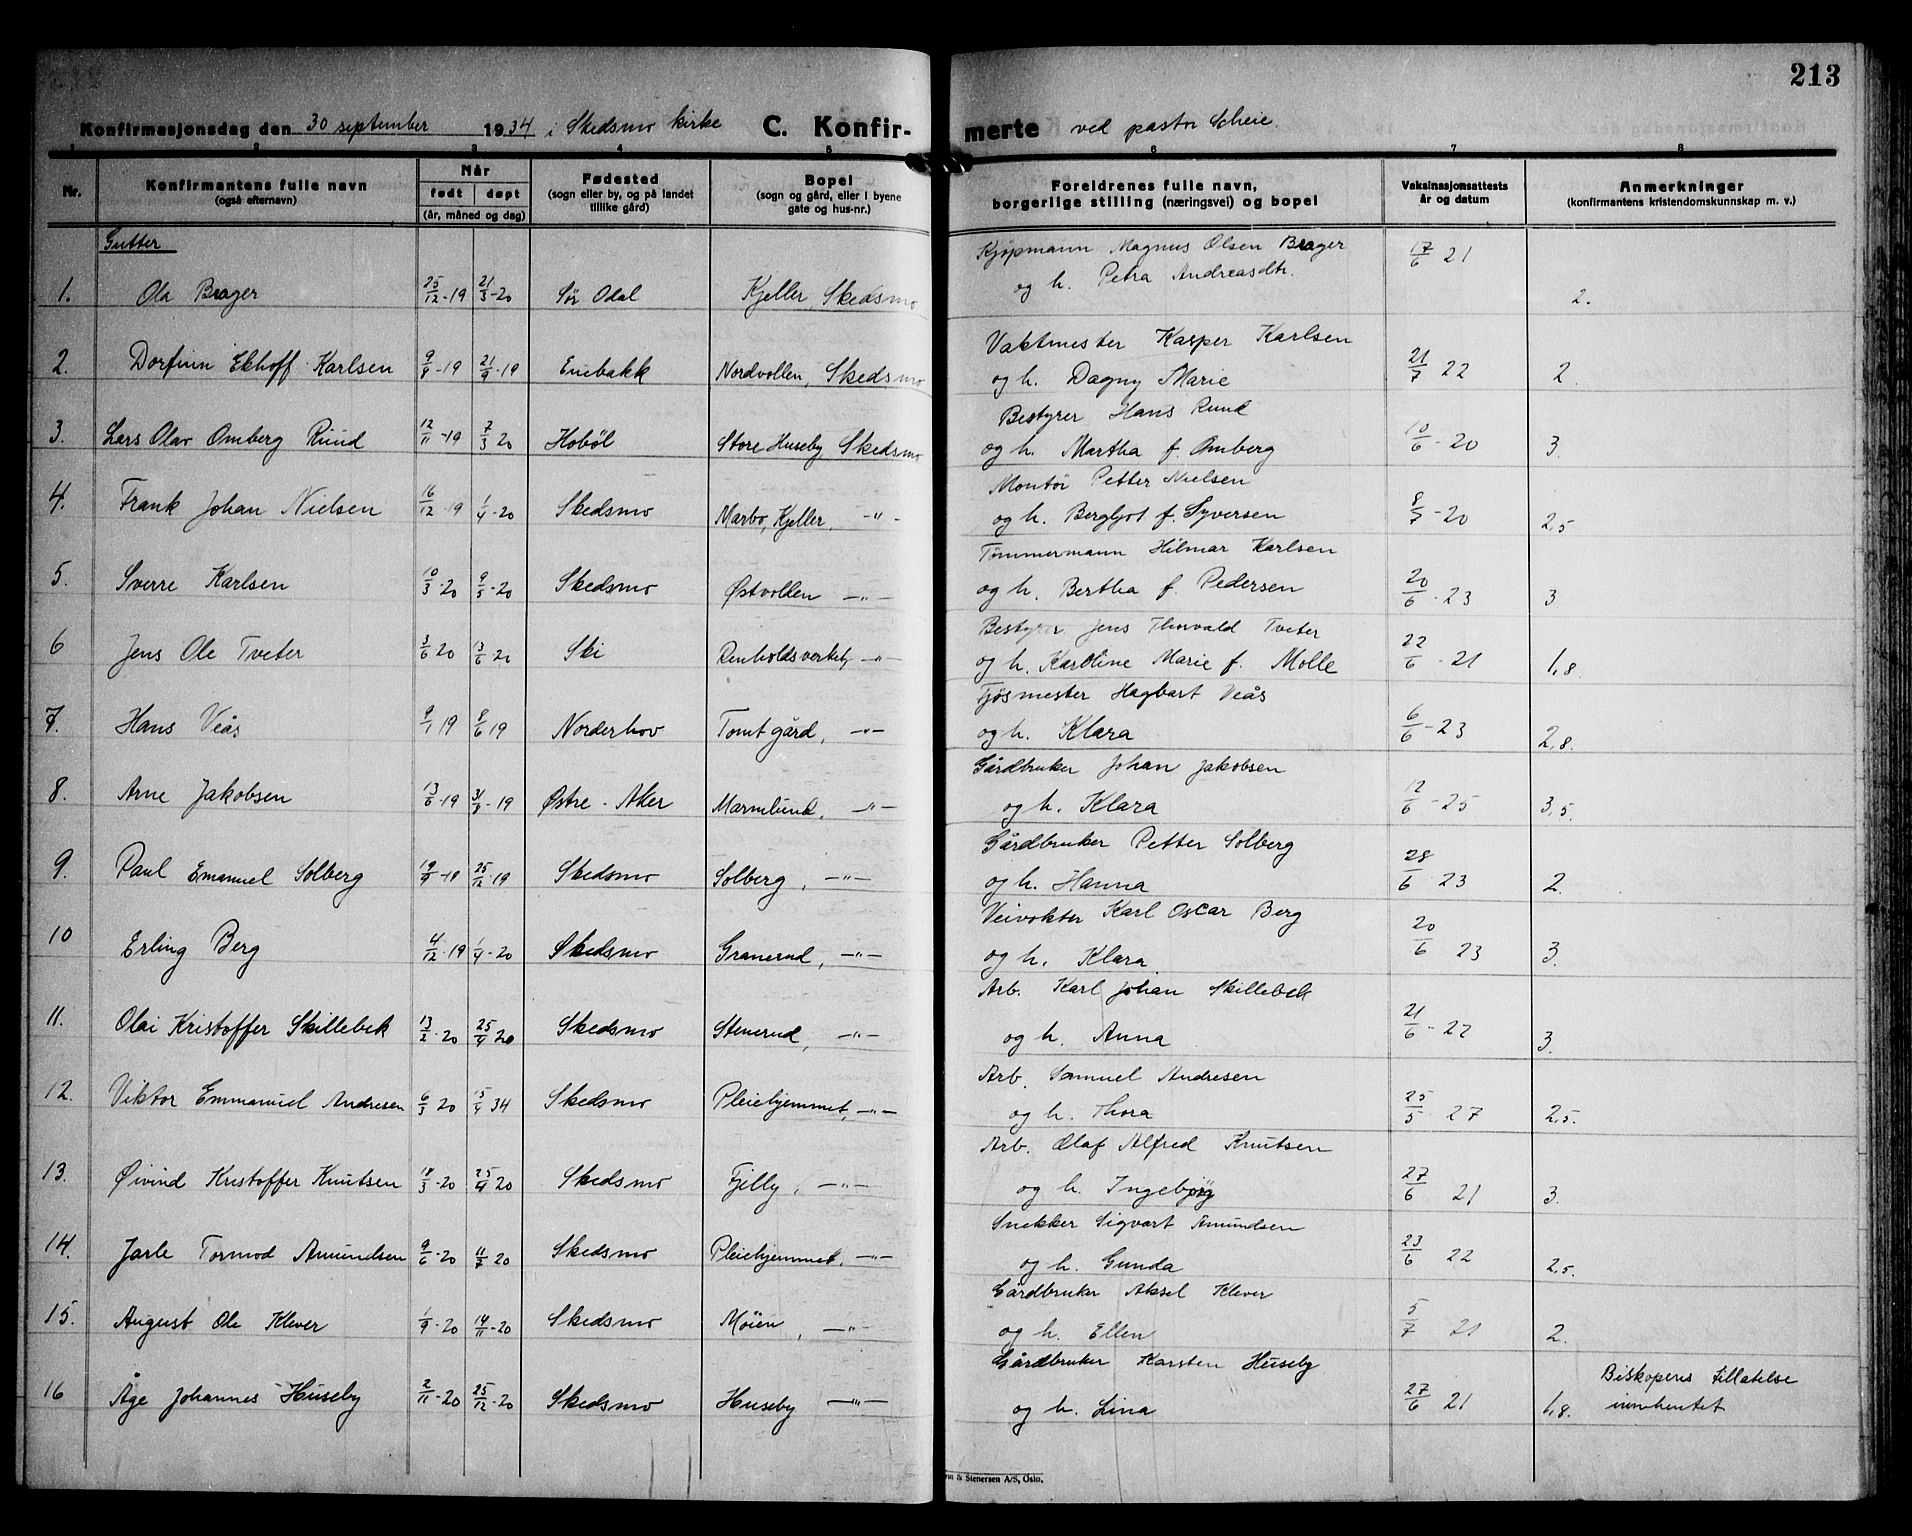 213
Konfirmasjonsdag den 30 september 1934 i Skedsmo kirke C. Konfir- merte ved pastor Scheie.
1 2 3 4 5 6 7 8
Nr. Konfirmantens fulle navn (også efternavn) Når født døpt (år, måned og dag) Fødested (sogn eller by, og på landet tillike gård) Bopel (sogn og gård, eller i byene gate og hus-nr.) Foreldrenes fulle navn, borgerlige stilling (næringsvei) og bopel Vaksinasjonsattests år og datum Anmerkninger (konfirmantens kristendomskunnskap m. v.)
Gutter
Kjøpmann Magnus Olsen Brager
1. Ola Brager 25/12-19 21/3-20 Sør Odal Kjeller, Skedsmo og h. Petra Andreasdtr. 17/6 21 2.
Vaktmester Kasper Karlsen
2. Dorfinn Ekhoff Karlsen 9/8-19 21/9-19 Enebakk Nordvollen, Skedsmo og h. Dagny Marie 21/7 22 2.
Bestyrer Hans Ruud
3. Lars Olav Omberg Ruud 12/11-19 7/3 20 Hobøl Store Huseby Skedsmo og h. Martha f. Omberg 10/6-20 3.
Montør Petter Nielsen
4. Frank Johan Nielsen 16/12-19 1/4-20 Skedsmo Marbo, Kjeller, -"- og h. Bergljot f. Syversen 8/7-20 2,5
Tømmermann Hilmar Karlsen
5. Sverre Karlsen 10/3-20 9/5-20 Skedsmo Østvolden -"- og h. Bertha f. Pedersen 20/6-23 3
Bestyrer Jens Thorvald Tveter
6 Jens Ole Tveter 3/6 20 13/6-20 Ski Renholdsverket, -"- og h. Karoline Marie f. Molle 22/6-21 1,8.
Fjøsmester Hagbart Veås
7. Hans Veås 9/1 19 8/6 19 Norderhov Tomt gård, -"- og h. Klara 6/6-23 2,8.
Gårdbruker Johan Jakobsen
8. Arne Jakobsen 13/6-19 31/8-19 Østre-Aker Marmlund, -"- og h. Klara 12/6-25 3,5.
Gårdbruker Petter Solberg
9. Paul Emanuel Solberg 25/12-19 Skedsmo Solberg, -"- og h. Hanna 28/6 23 2.
Veivokter Karl Oscar Berg
10 Erling Berg 4/12-19 1/4-20 Skedsmo Granerud, -"- og h. Klara 20/6 23 3.
Arb. Karl Johan Skillebek
11. Olai Kristoffer Skillebek 13/2-20 25/4 20 Skedsmo Stenerud, -"- og h. Anna 21/6-22 3.
Arb. Samuel Andresen
12. Viktor Emmanuel Andresen 6/3 20 15/4 34 Skedsmo Pleiehjemmet, -"- og h. Thora 25/5 27 2,5.
Arb. Olaf Alfred Knutsen
13. Øivind Kristoffer Knutsen 18/3-20 25/4 20 Skedsmo Fjelly, -"- og h. Ingebjørg 27/6 21 3.
Snekker Sigvart Amundsen
14. Jarle Tormod Amundsen 9/6-20 11/7 20 Skedsmo Pleiehjemmet, -"- og h. Gunda 23/6 22 2,5.
Gårdbruker Aksel Klever
15. August Ole Klever 1/9-20 14/11-20 Skedsmo Moien, -"- og h. Ellen 5/7 21 2.
Gårdbruker Karsten Huseby
16 Åge Johannes Huseby 2/11-20 25/12-20 Skedsmo Huseby -"- og h. Lina 27/6 21 1,8. Biskopens tillatelse innhentet
& Stenersen A/S, Oslo.